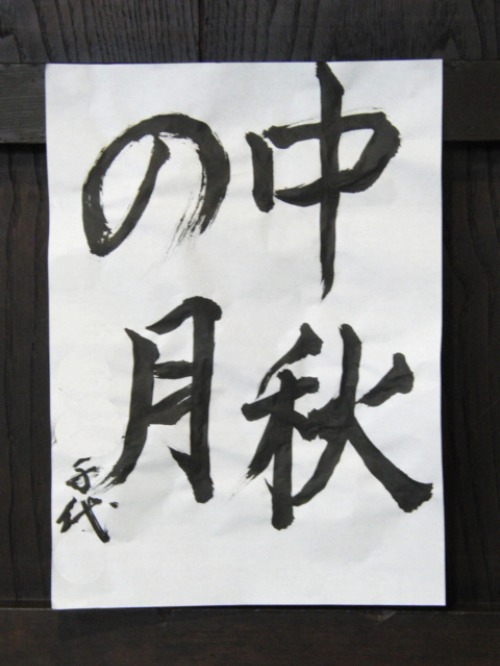 中秋
の月
千代